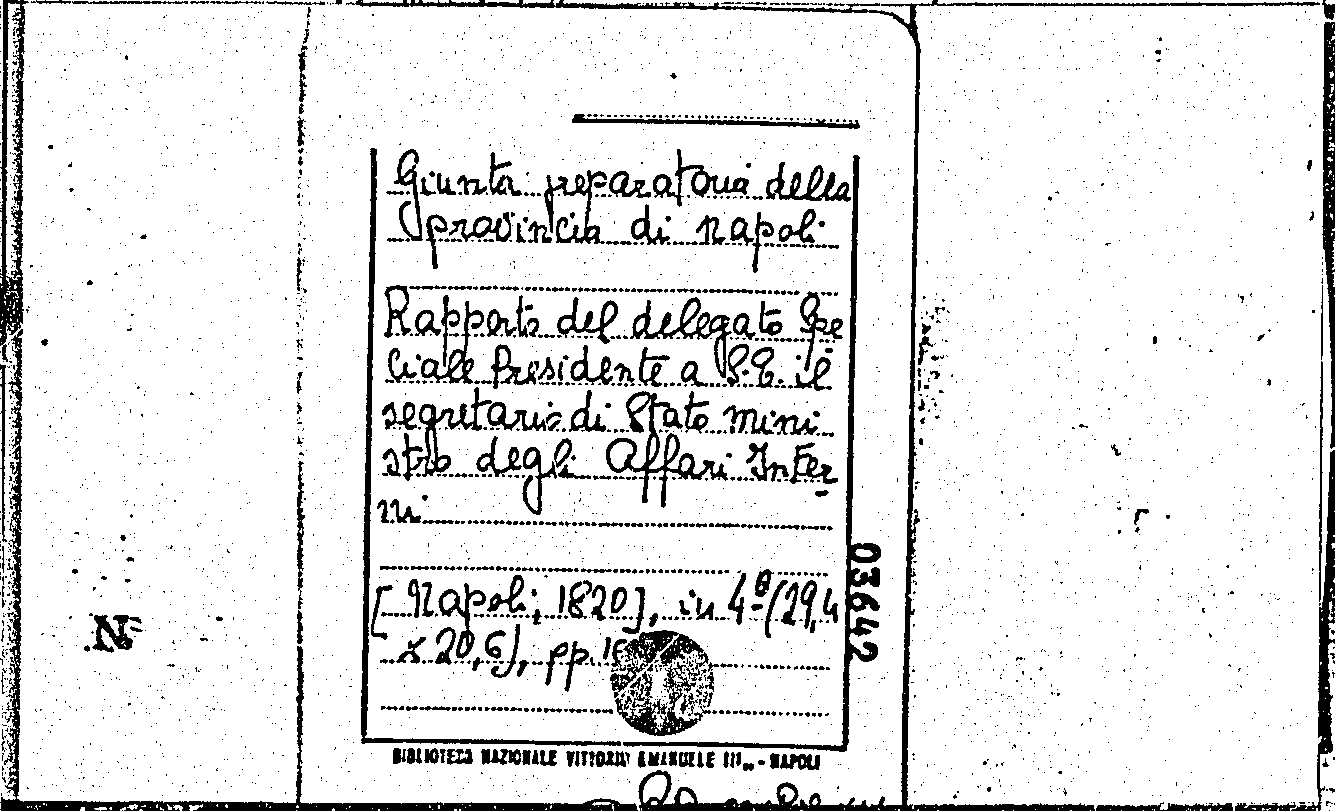 Giunta preparatoria della
provincia di Napoli
Rapporto del delegato Spe
ciale Presidente a S.E. il
segretario di Stato mini
stro degli Affari Inter
ni
[Napoli, 1820], in 4º (29,4
x 20,6), pp.
03642
N
BIBLIOTECA NAZIONALE VITTORIO EMANUELE III„ - NAPOLI